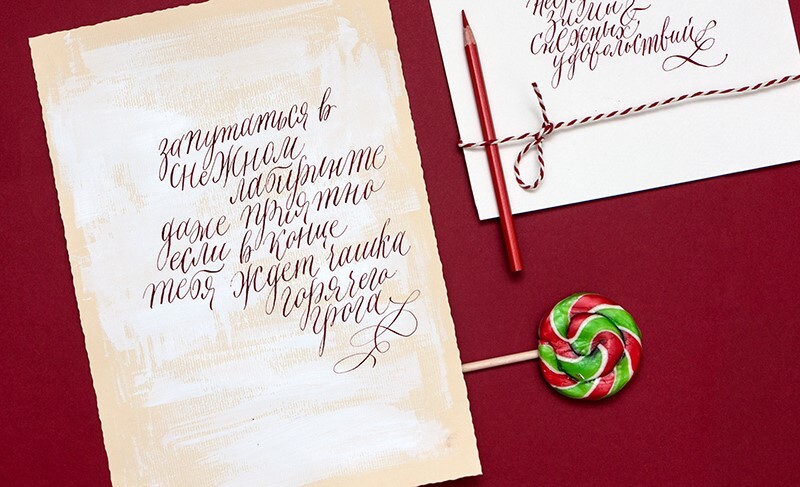 запутаться в
снежном
лабиринте
даже приятно
если в конце
тебя ждет чашка
горячего
грога
зимы &
снежных
удовольствий